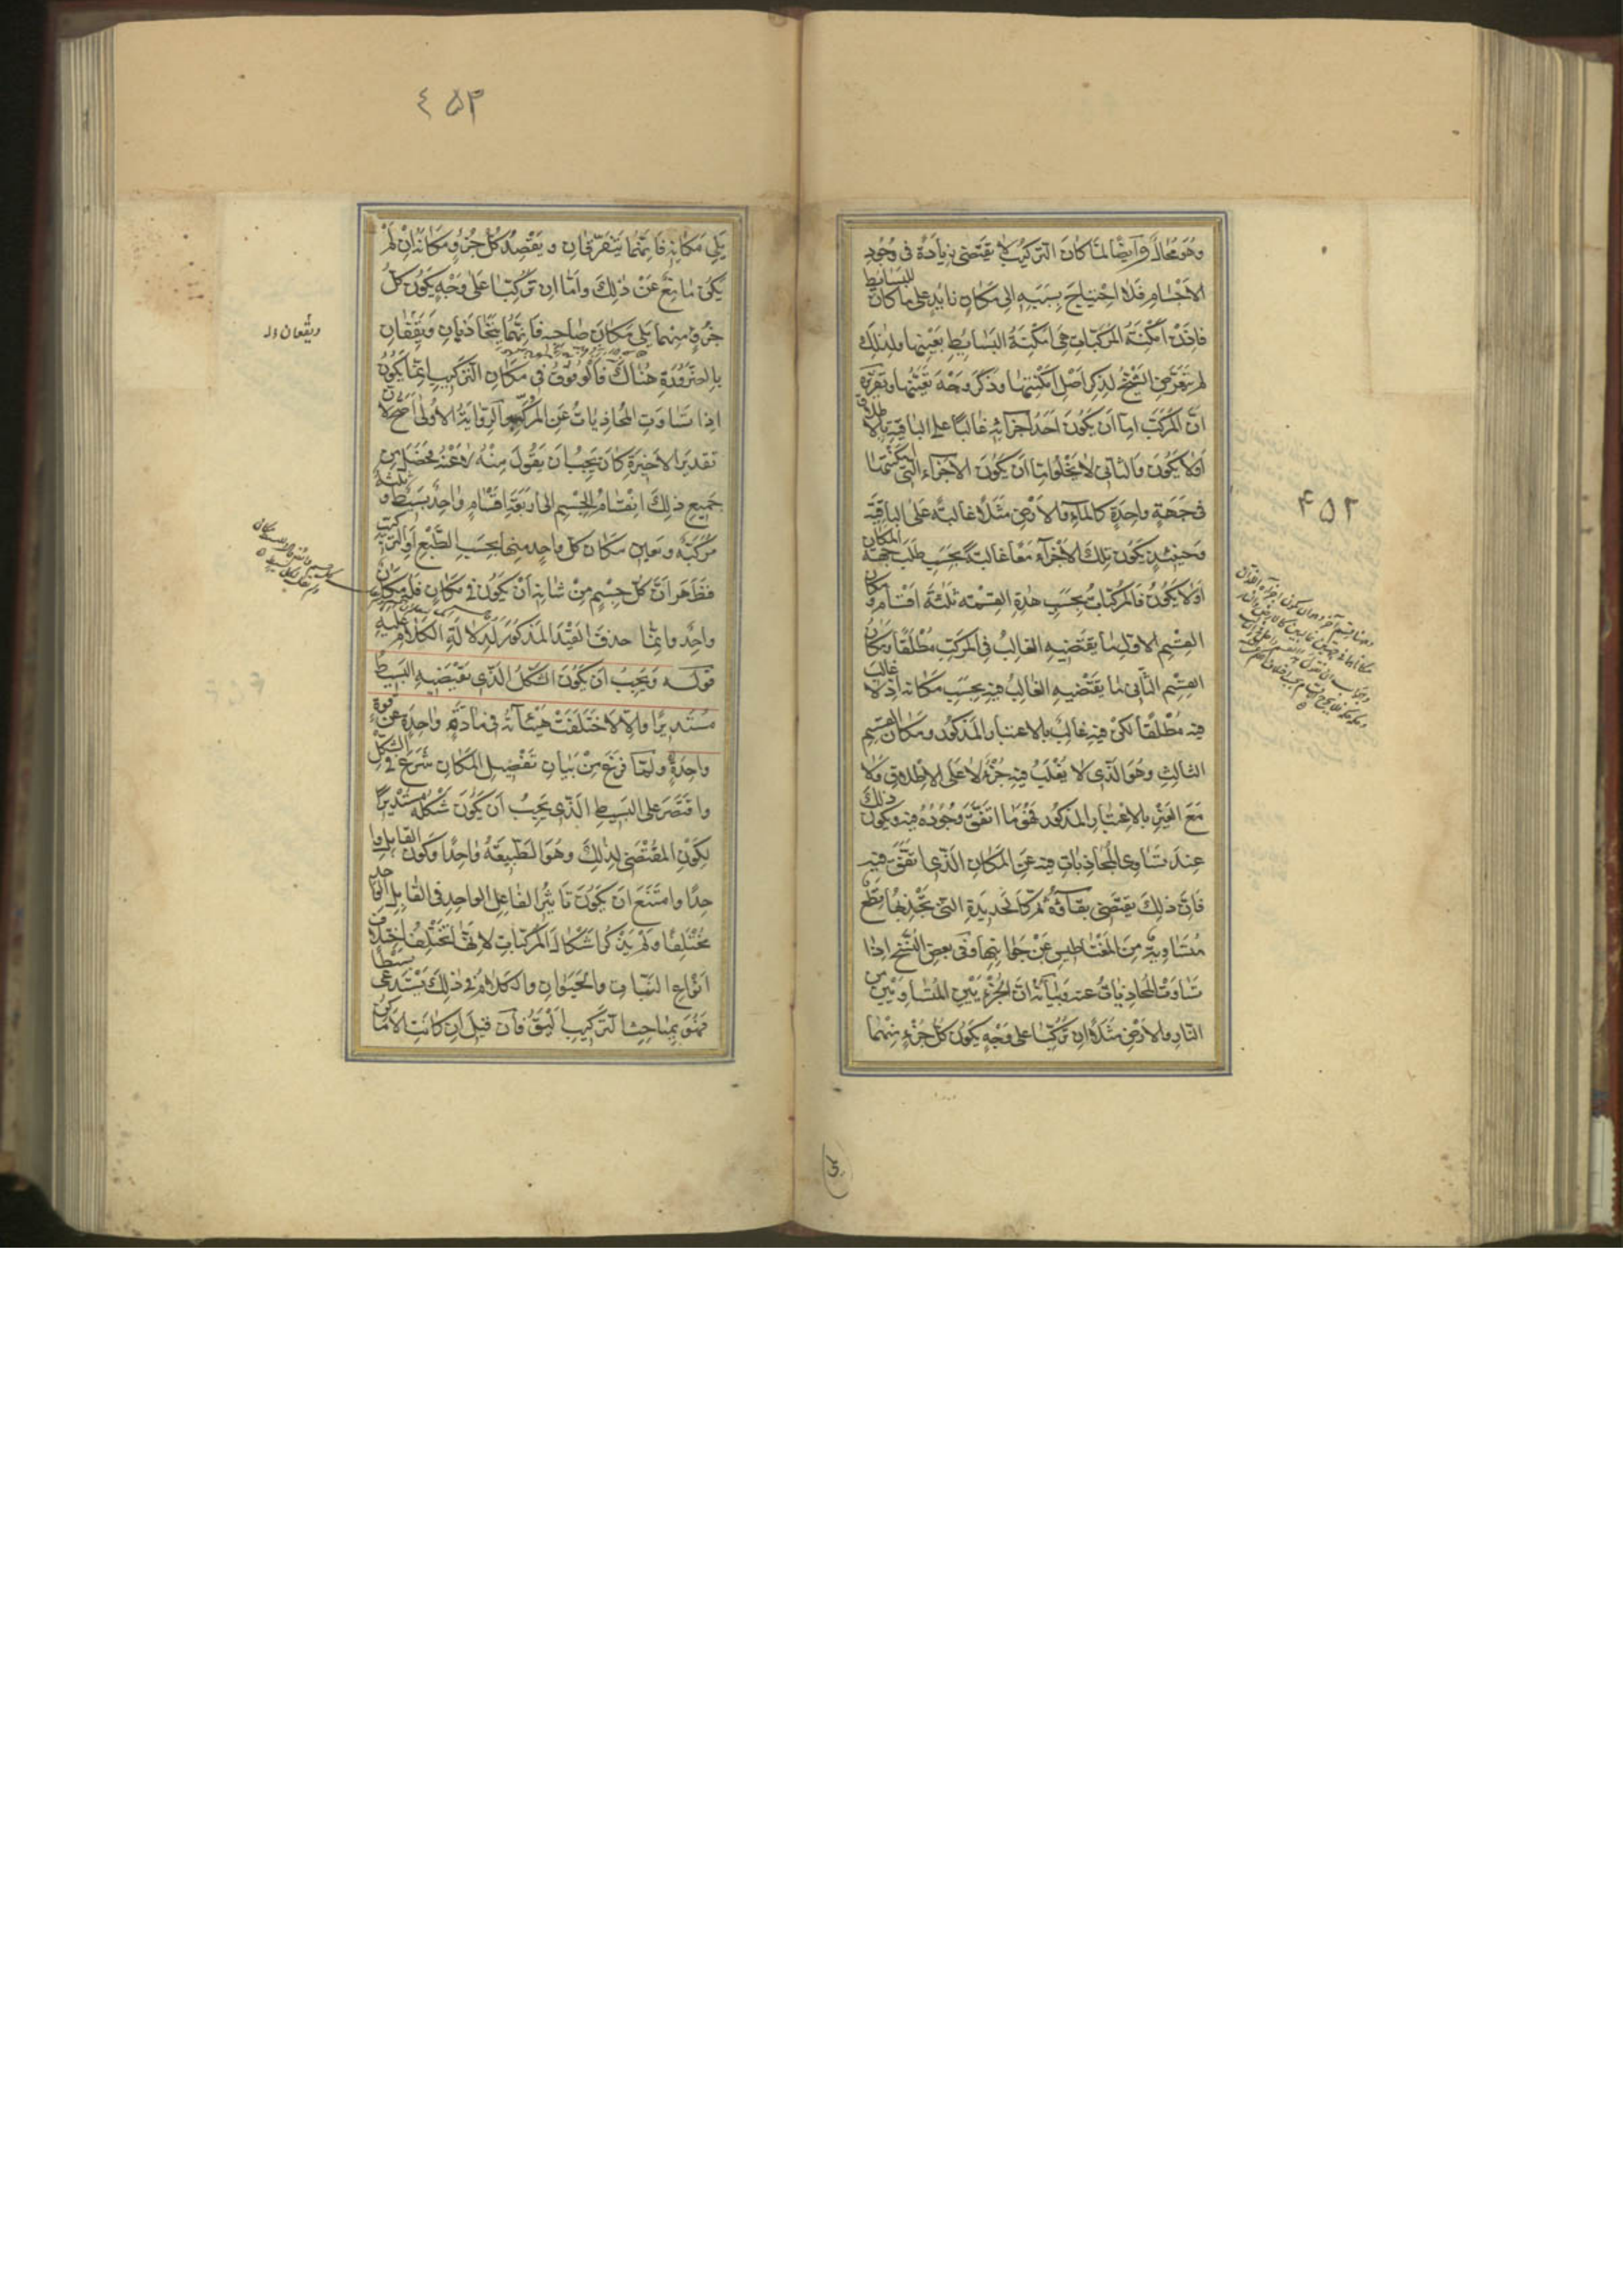 وَهُوَ مُحَالٌ وَاَيضًا لمّا كانَ التركيبُ لا يقتضى زيادةً فى وُجُودِ
الاَجسَامِ فَلا احتياجَ بِسَبَبِهِ الى مَكانٍ زايدٍ على ما كانَ للبسَايط
فاِذَنْ اَمكِنَةُ المركّباتِ هىَ اَمكنةُ البَسَايطِ بعَيْنها ولذلكَ
لم يتعرّض الشّيخُ لذكر اَصل اَمكنتها وذكرَ وجهَ تعَيّنها وتقريرُه
انّ المُركّبَ امّا اَن يكُونَ اَحَدُ اَجزائه غالبًا على الباقيَةِ بالاطلاق
اَولا يكُونَ والثانى لا يَخْلُو امّا اَن يَكُونَ الاَجزاء التى اَمكنتها
فى جهَةٍ واحِدَةٍ كالماءِ والاَرضِ مَثَلًا غالبَةً على الباقيَةِ
وَحينَئذٍ يكُون تلكَ الاَجْزآءُ مَعًا غالبةً بحَسَبِ طَلَبِ جهة المكان
اَولا يكُونُ فالمركّباتُ بحسَبِ هٰذهِ القسْمة ثلثةُ اَقسَامٍ ومكان
القِسْمِ الاوّلِ مَا يَقْتَضيهِ الغالِبُ فى المركّبِ مُطْلَقًا ومكانُ
القِسْمِ الثّانى مَا يَقْتَضيهِ الغالِبُ فيهِ بحسَبِ مَكانه اذ لا غالب
فيهِ مُطْلقًا لكن فيهِ غالِبٌ بالاعتبار المذكُور ومَكانُ القسم
الثالثِ وَهُوَ الّذى لا يَغْلَبُ فيهِ جُزْءٌ لا عَلَى الاطلاقِ وَلا
مَعَ الغَيْرِ بالاعتبارِ المذكُورِ فَهُوَ مَا اتّفقَ وُجُودُهُ فيهِ ويكون ذلك
عِندَ تساوى المُجاذباتِ فيه عَن المَكانِ الّذى اتّفقَ فيهِ
فَاِنّ ذلكَ يَقتضى بقآءَهُ ثم كالحديدَةِ التى تجْذبُهَا قطعٌ
مُتَسَاوِيةٌ مِنَ المغْناطيسِ عَنْ جَوانبِهَا وفى بَعضِ النُّسَخِ اِذا
تسَاوَت المُجاذباتُ عنه وَبَيانهُ انّ الجُزْءَيْن المُتَسَاوِيَيْنِ مِن
النّارِ والاَرْضِ مَثَلًا اِن تَركّبا عَلى وَجْهٍ يكُونُ كلُّ جُزْءٍ مِنْهُمَا
۴۵۲
يَلى مَكانه فاِنّهما يَتفرّقانِ ويَقصِدُ كلُّ جُزْءٍ مَكانَهُ اِنْ لَمْ
يَكُن مانعٌ عَنْ ذٰلكَ وامّا اِن تركّبا عَلى وَجْهٍ يكُون كلُّ
جُزءٍ مِنهما يَلى مَكانَ صاحِبِهِ فَاِنّهما يتجاذبانِ وَيَقِفانِ
بالضّرُورَةِ هُناكَ فَالوقُوفُ فى مكانِ التّركيبِ اِنّما يكُونُ
اِذا تسَاوَتِ المُجاذباتُ عَنِ المركّبِ والرّوايَةُ الاُولى اَصَحّ لانّ
تقديرِ الاخيرَةِ كانَ يجِبُ اَن يَقُولَ مِنْهُ لا عَنْهُ فحصَلَ مِن
جميعِ ذلكَ انقسَامُ الجِسْمِ الى اَربَعَةِ اَقْسَامٍ واحِدٌ بسِيطٌ وثلثةٌ
مُركّبَةٌ وتعيّن مكان كلِّ واحِدٍ منها بحسَبِ الطّبْعِ اَو التركيب
فَظَهَر اَنّ كلَّ جِسْمٍ مِنْ شَانِه اَنْ يَكُونَ فى مَكانٍ فَلَهُ مَكانٌ
واحِدٌ وانّما حذفَ القَيْدَ المذكُورَ لِدلالةِ الكلام عَليه
قولـه وَيَجِبُ اَن يَكُونَ الشّكلُ الّذى يَقْتَضيهِ البَسيطُ
مُستَديرًا واِلّا لاخْتَلَفَتْ هَيْئاتُه فى مادّةٍ واحِدَةٍ عَن قوّة
واحِدَةٍ ولمّا فرَغَ مِنْ بيانِ تَفْصيلِ المَكانِ شَرَعَ فى الشّكل
واقتَصَرَ على البَسيطِ الّذى يَجِبُ اَن يكُونَ شَكْلُهُ مُسْتَديرًا
لِكَوْنِ المُقْتَضى لذٰلكَ وهُوَ الطّبيعَةُ واحِدًا وكون القابِل وا
حِدًا وامتَنَعَ اَن يَكُونَ تَاثيرُ الفاعِلِ الواحِدِ فى القابِل الواحد
مُخْتَلِفًا ولَمْ يَذكُر اَشكالَ المُركّباتِ لانّها تَخْتَلِفُ اختلاف
اَنْواعِ النّبَاتِ والحَيَوانِ والكلامُ فى ذٰلكَ يَسْتَدعى بَسْطًا
فَهُوَ بِمَباحِثِ التّركيبِ اَلْيَقُ فاَن قيلَ اِن كانَتِ الاَماكِنُ
٤۵۳
ويقعان